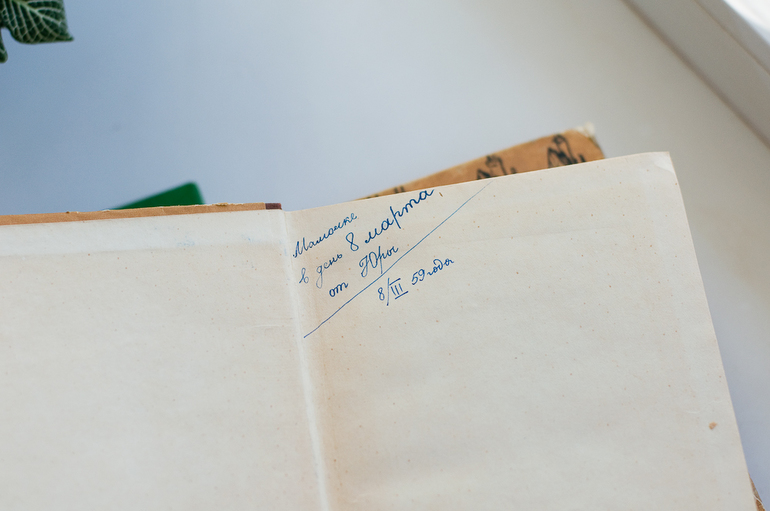 Мамочке
в день 8 марта,
от Юры
8/III 59 года